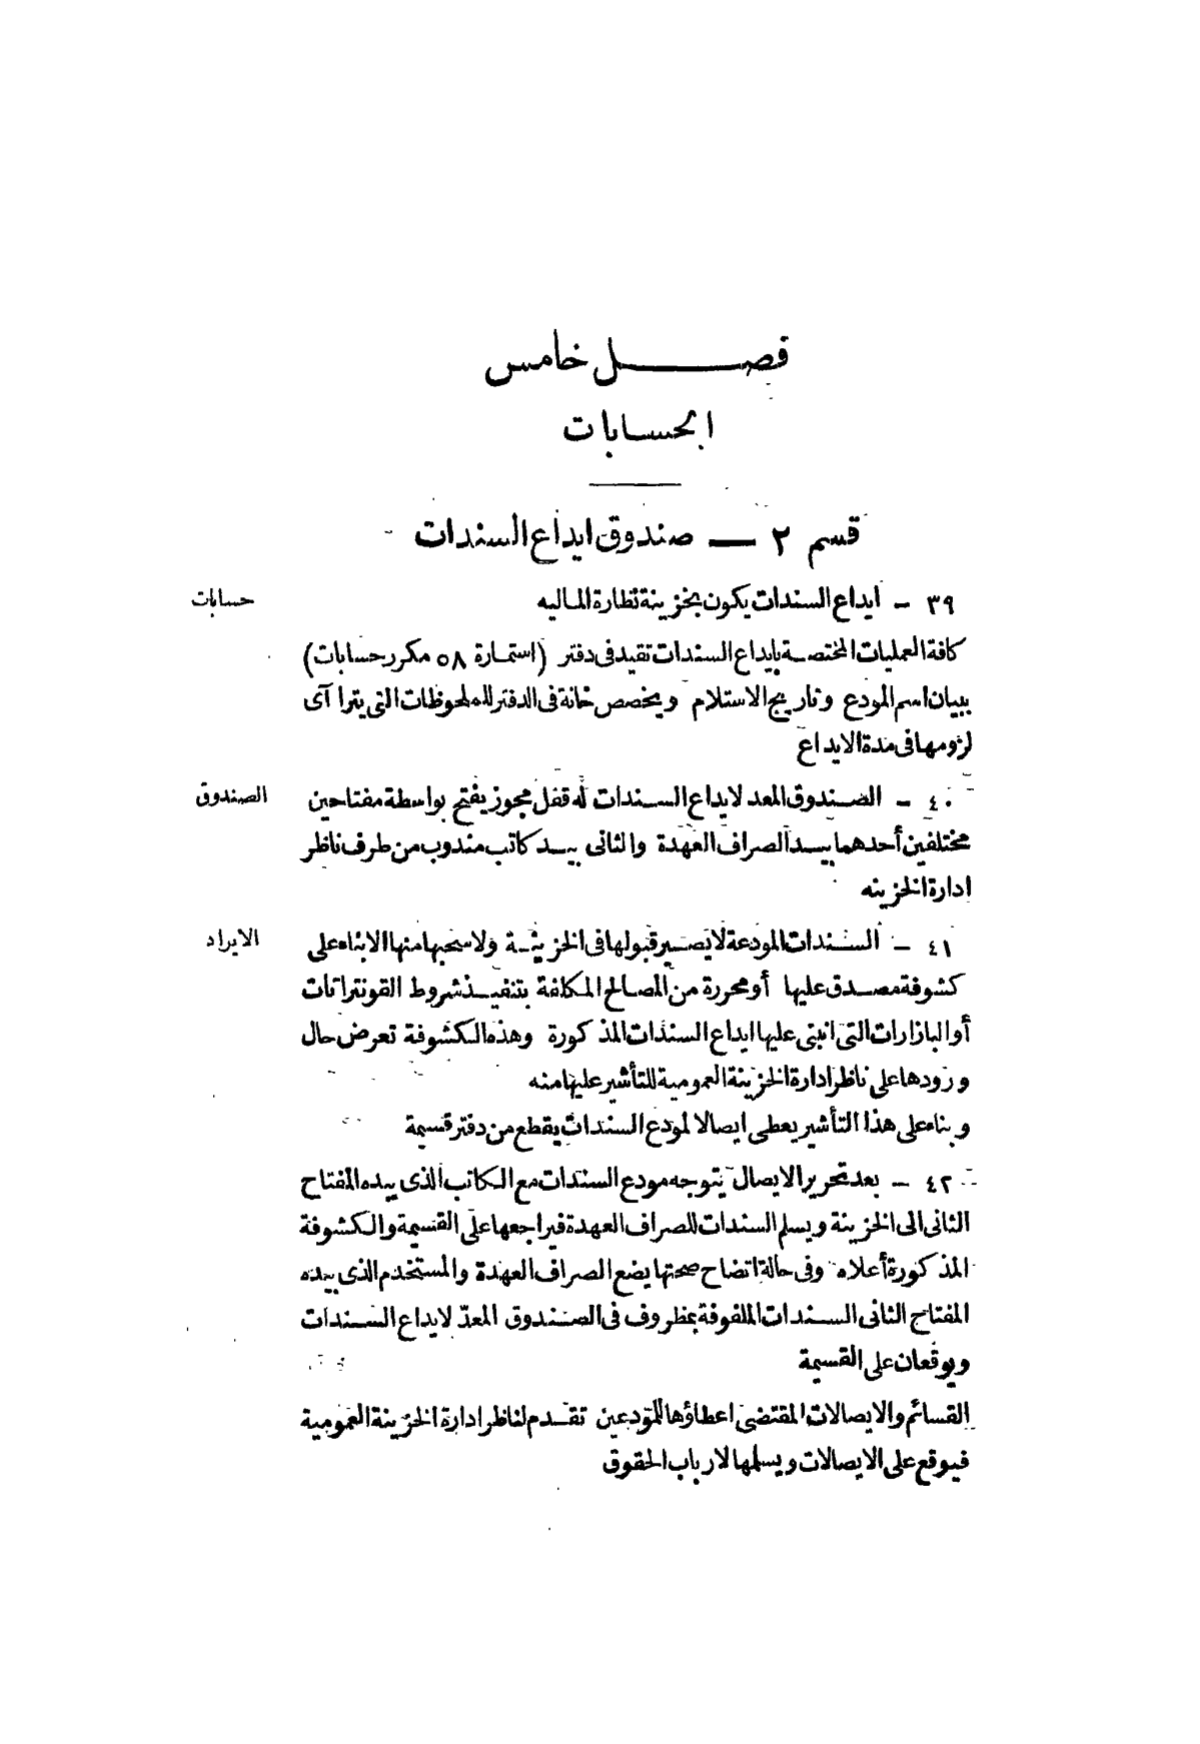 فصل خامس
الحسابات
قسم ٢ — صندوق ايداع السندات
حسابات
٣٩ - ايداع السندات يكون بخزينة نظارة الماليه
كافة العمليات المختصة بايداع السندات تقيد فى دفتر (استمارة ٥٨ مكرر حسابات)
ببيان اسم المودع وتاريخ الاستلام ويخصص خانة فى الدفتر للملحوظات التى يترا آى
لزومها فى مدة الايداع
الصندوق
٤٠ - الصندوق المعد لايداع السندات له قفل مجوز يفتح بواسطة مفتاحين
مختلفين أحدهما بيد الصراف العهدة والثانى بيد كاتب مندوب من طرف ناظر
ادارة الخزينه
الايراد
٤١ - السندات المودعة لا يصير قبولها فى الخزينة ولا سحبها منها الا بناء على
كشوفة مصدق عليها أو محررة من المصالح المكلفة بتنفيذ شروط القونتراتات
أو البازارات التى انبنى عليها ايداع السندات المذكورة وهذه الكشوفة تعرض حال
ورودها على ناظر ادارة الخزينة العمومية للتأشير عليها منه
وبناء على هذا التأشير يعطى ايصالا لمودع السندات يقطع من دفتر قسيمة
٤٢ - بعد تحرير الايصال يتوجه مودع السندات مع الكاتب الذى بيده المفتاح
الثانى الى الخزينة ويسلم السندات للصراف العهدة فيراجعها على القسيمة والكشوفة
المذكورة أعلاه وفى حالة اتضاح صحتها يضع الصراف العهدة والمستخدم الذى بيده
المفتاح الثانى السندات الملفوفة بمظروف فى الصندوق المعدّ لايداع السندات
ويوقعان على القسيمة
القسائم والايصالات المقتضى اعطاؤها للمودعين تقدم لناظر ادارة الخزينة العمومية
فيوقع على الايصالات ويسلمها لارباب الحقوق